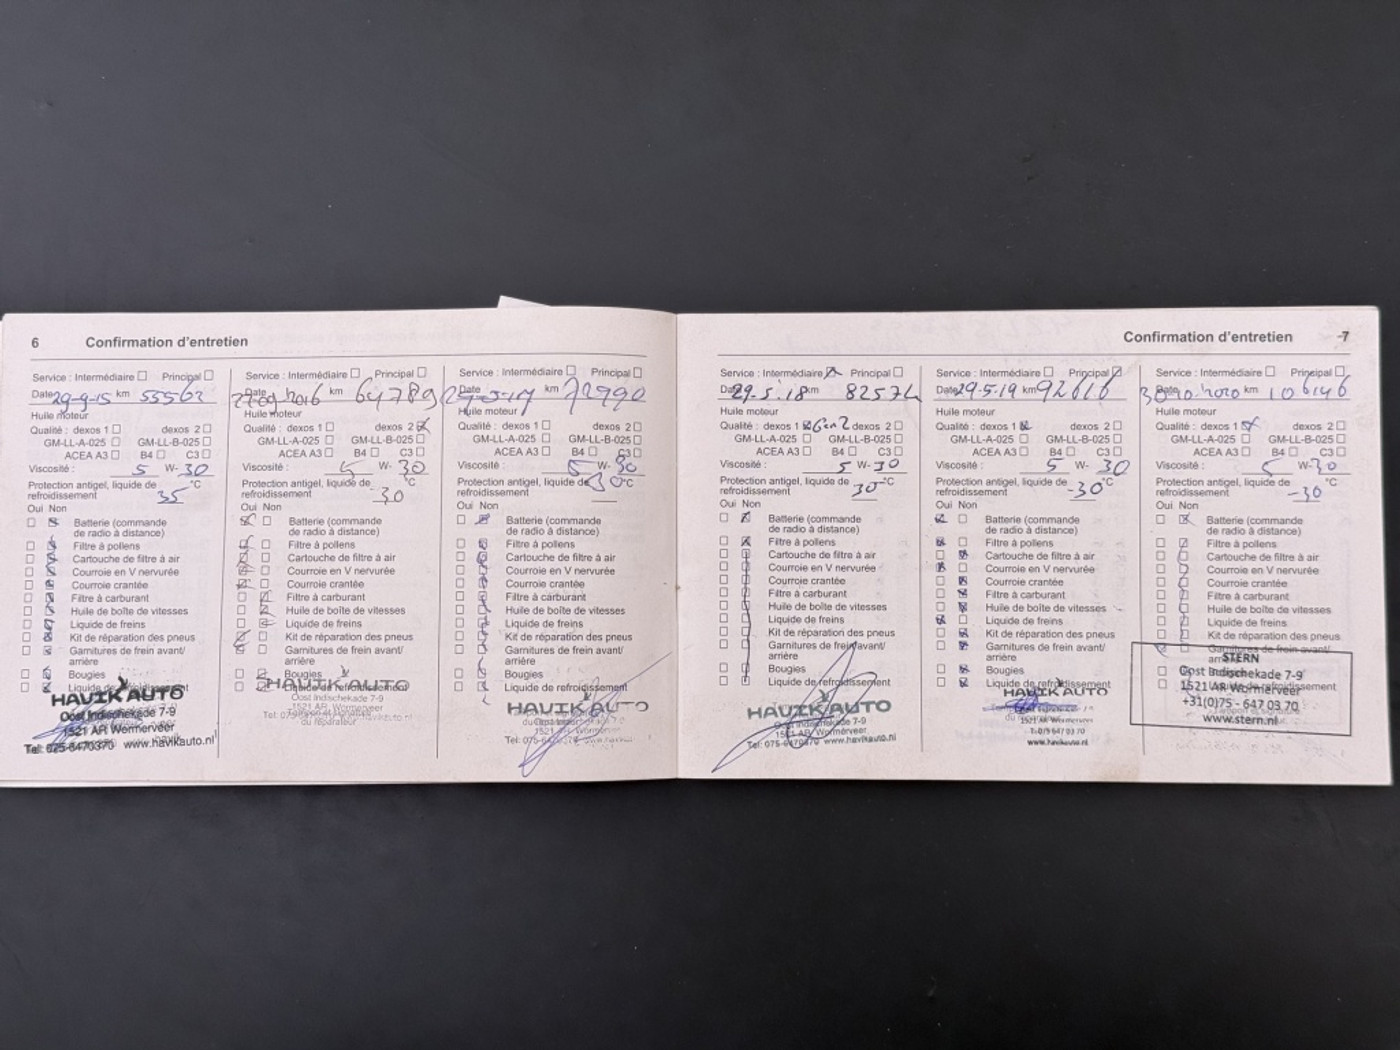 6 Confirmation d'entretien
Service : Intermédiaire Principal
Date 29-9-15 km 55562
Huile moteur
Qualité : dexos 1 dexos 2
GM-LL-A-025 GM-LL-B-025
ACEA A3 B4 C3
Viscosité : 5 W- 30
Protection antigel, liquide de °C
refroidissement 35
Oui Non
Batterie (commande
de radio à distance)
Filtre à pollens
Cartouche de filtre à air
Courroie en V nervurée
Courroie crantée
Filtre à carburant
Huile de boîte de vitesses
Liquide de freins
Kit de réparation des pneus
Garnitures de frein avant/
arrière
Bougies
Liquide de refroidissement
HAVIK AUTO
Oost Indischekade 7-9
1521 AR Wormerveer
Tel: 075-6470370 www.havikauto.nl
Service : Intermédiaire Principal
Date 2016 km 64789
Huile moteur
Qualité : dexos 1 dexos 2
GM-LL-A-025 GM-LL-B-025
ACEA A3 B4 C3
Viscosité : 5 W- 30
Protection antigel, liquide de °C
refroidissement -30
Oui Non
Batterie (commande
de radio à distance)
Filtre à pollens
Cartouche de filtre à air
Courroie en V nervurée
Courroie crantée
Filtre à carburant
Huile de boîte de vitesses
Liquide de freins
Kit de réparation des pneus
Garnitures de frein avant/
arrière
Bougies
Liquide de refroidissement
HAVIK AUTO
Oost Indischekade 7-9
1521 AR Wormerveer
du réparateur
Service : Intermédiaire Principal
Date km 72990
Huile moteur
Qualité : dexos 1 dexos 2
GM-LL-A-025 GM-LL-B-025
ACEA A3 B4 C3
Viscosité : 5 W- 30
Protection antigel, liquide de -30 °C
refroidissement
Oui Non
Batterie (commande
de radio à distance)
Filtre à pollens
Cartouche de filtre à air
Courroie en V nervurée
Courroie crantée
Filtre à carburant
Huile de boîte de vitesses
Liquide de freins
Kit de réparation des pneus
Garnitures de frein avant/
arrière
Bougies
Liquide de refroidissement
HAVIK AUTO
Oost Indischekade 7-9
1521 AR Wormerveer
Tel: 075-6470370 www.havikauto.nl
Confirmation d'entretien 7
Service : Intermédiaire Principal
Date 29-5-18 km 82574
Huile moteur
Qualité : dexos 1 Gen 2 dexos 2
GM-LL-A-025 GM-LL-B-025
ACEA A3 B4 C3
Viscosité : 5 W- 30
Protection antigel, liquide de °C
refroidissement 30
Oui Non
Batterie (commande
de radio à distance)
Filtre à pollens
Cartouche de filtre à air
Courroie en V nervurée
Courroie crantée
Filtre à carburant
Huile de boîte de vitesses
Liquide de freins
Kit de réparation des pneus
Garnitures de frein avant/
arrière
Bougies
Liquide de refroidissement
HAVIK AUTO
Oost Indischekade 7-9
1521 AR Wormerveer
Tel: 075-6470370 www.havikauto.nl
Service : Intermédiaire Principal
Date 29-5-19 km 92616
Huile moteur
Qualité : dexos 1 dexos 2
GM-LL-A-025 GM-LL-B-025
ACEA A3 B4 C3
Viscosité : 5 W- 30
Protection antigel, liquide de °C
refroidissement -30
Oui Non
Batterie (commande
de radio à distance)
Filtre à pollens
Cartouche de filtre à air
Courroie en V nervurée
Courroie crantée
Filtre à carburant
Huile de boîte de vitesses
Liquide de freins
Kit de réparation des pneus
Garnitures de frein avant/
arrière
Bougies
Liquide de refroidissement
HAVIK AUTO
1521 AR Wormerveer
T: 075 647 03 70
www.havikauto.nl
Service : Intermédiaire Principal
Date 30-10-2020 km 106146
Huile moteur
Qualité : dexos 1 dexos 2
GM-LL-A-025 GM-LL-B-025
ACEA A3 B4 C3
Viscosité : 5 W- 30
Protection antigel, liquide de °C
refroidissement -30
Oui Non
Batterie (commande
de radio à distance)
Filtre à pollens
Cartouche de filtre à air
Courroie en V nervurée
Courroie crantée
Filtre à carburant
Huile de boîte de vitesses
Liquide de freins
Kit de réparation des pneus
Garnitures de frein avant/
STERN
Oost Indischekade 7-9
1521 AR Wormerveer
+31(0)75 - 647 03 70
www.stern.nl